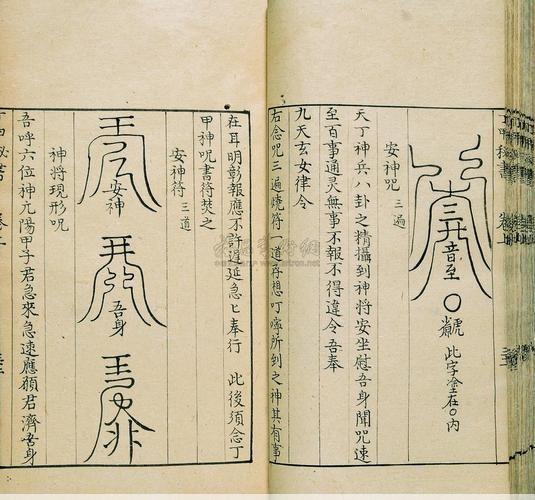 音至
○
此字塗在○內
安神咒 三遍
天丁神兵八卦之精攝到神將安坐慰吾身聞咒速
至百事通灵無事不報不得違令吾奉
九天玄女律令
右念咒三遍燒符一道存想叮嚀所到之神其有事
在耳明彰報應不許遲延急匕奉行 此後須念丁
甲神咒書符焚之
安神符 三道
安神
吾身
神將現形咒
吾呼六位神九陽甲子君急來急速應願君濟吾身